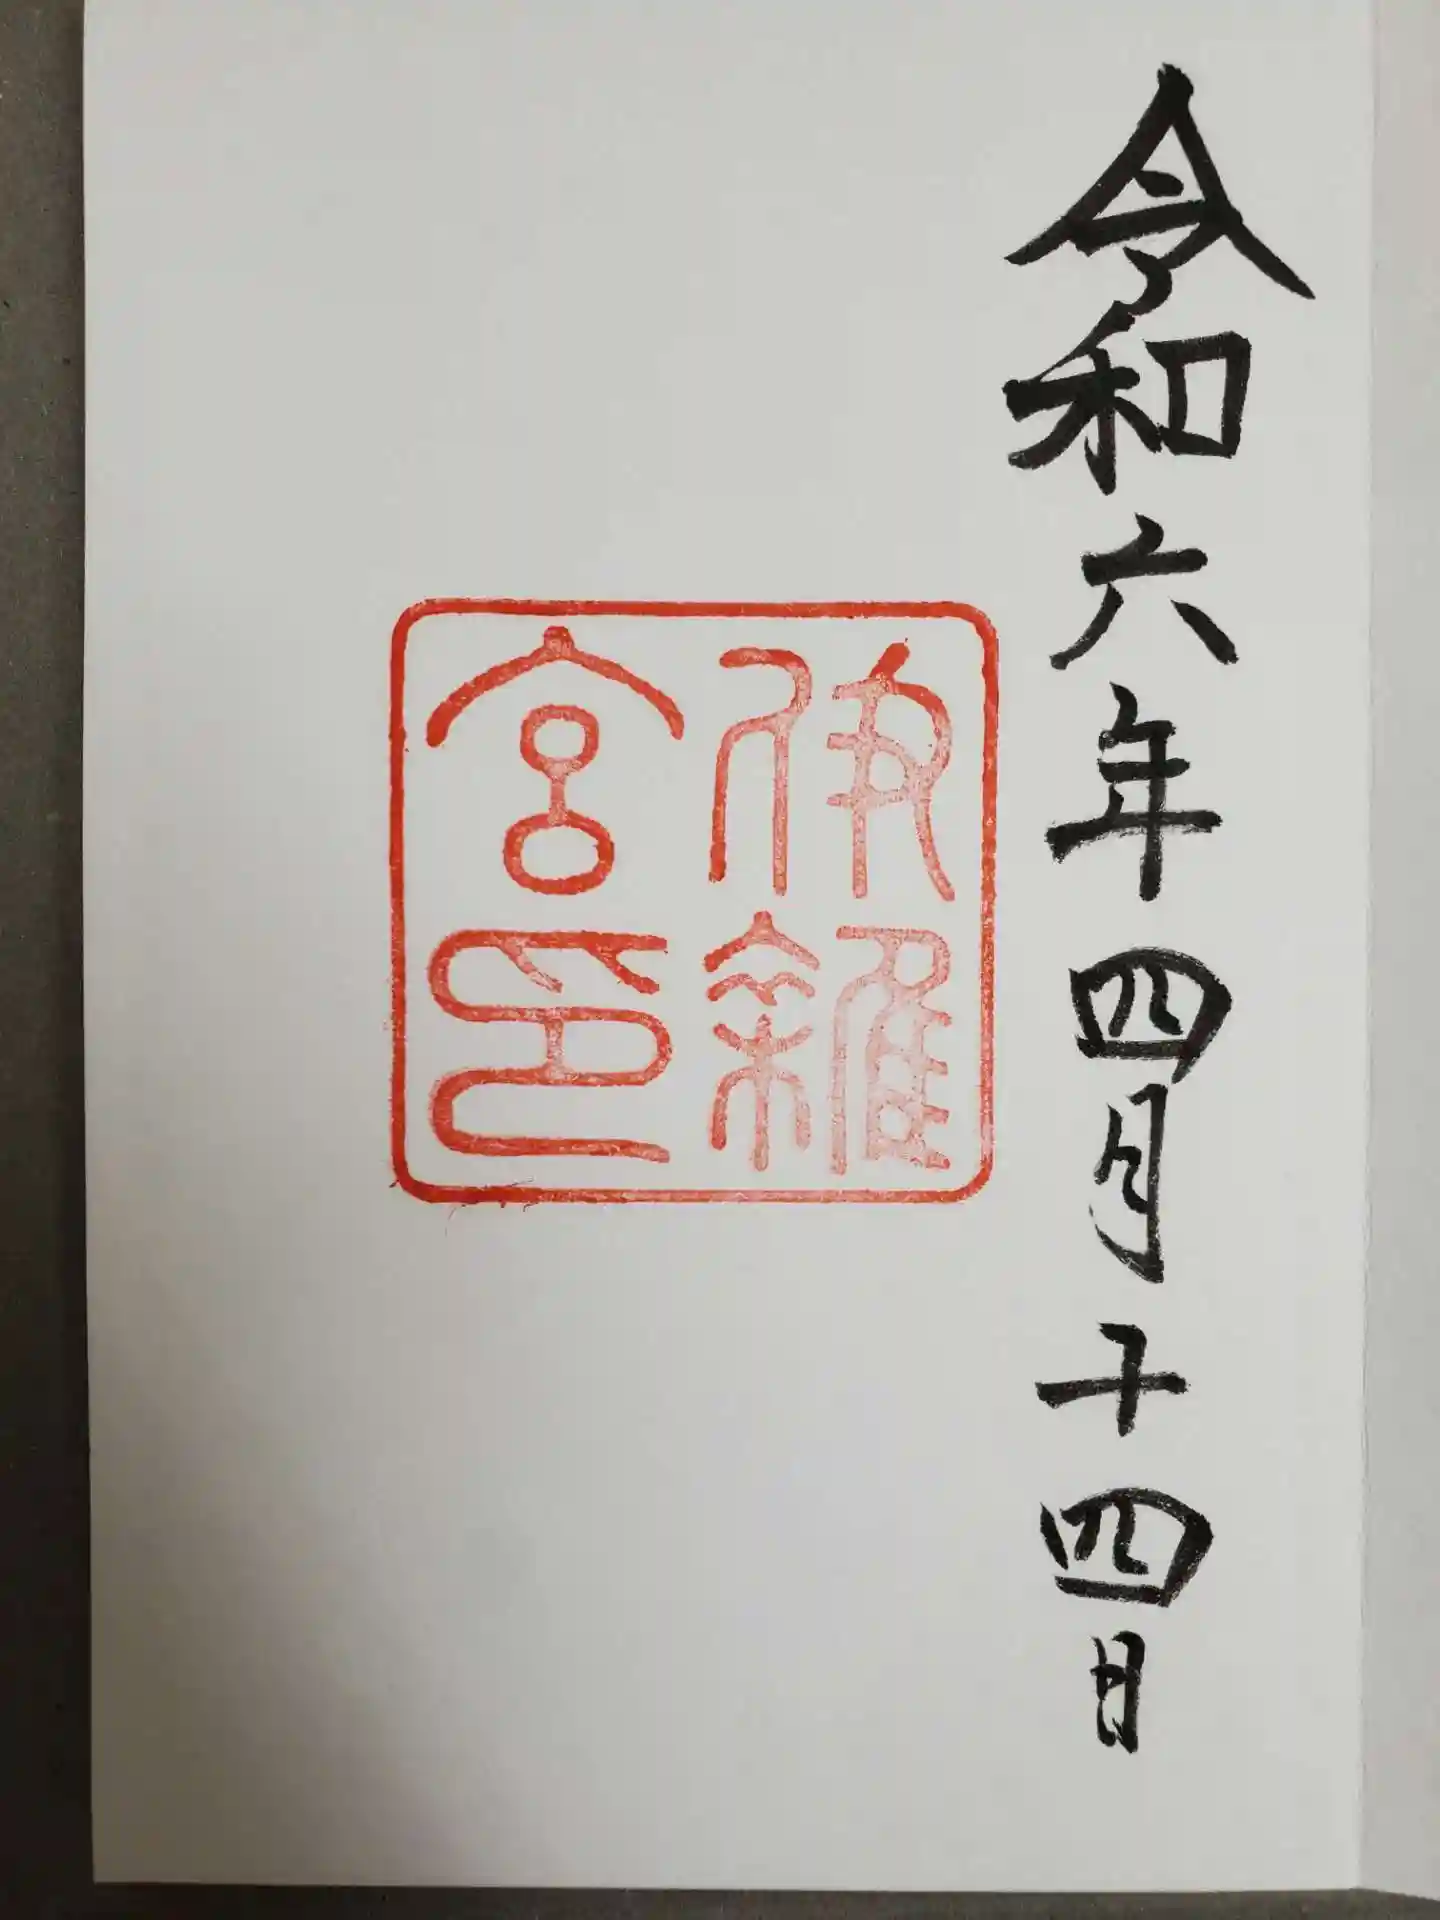 令和六年四月十四日
伊雜
宮印